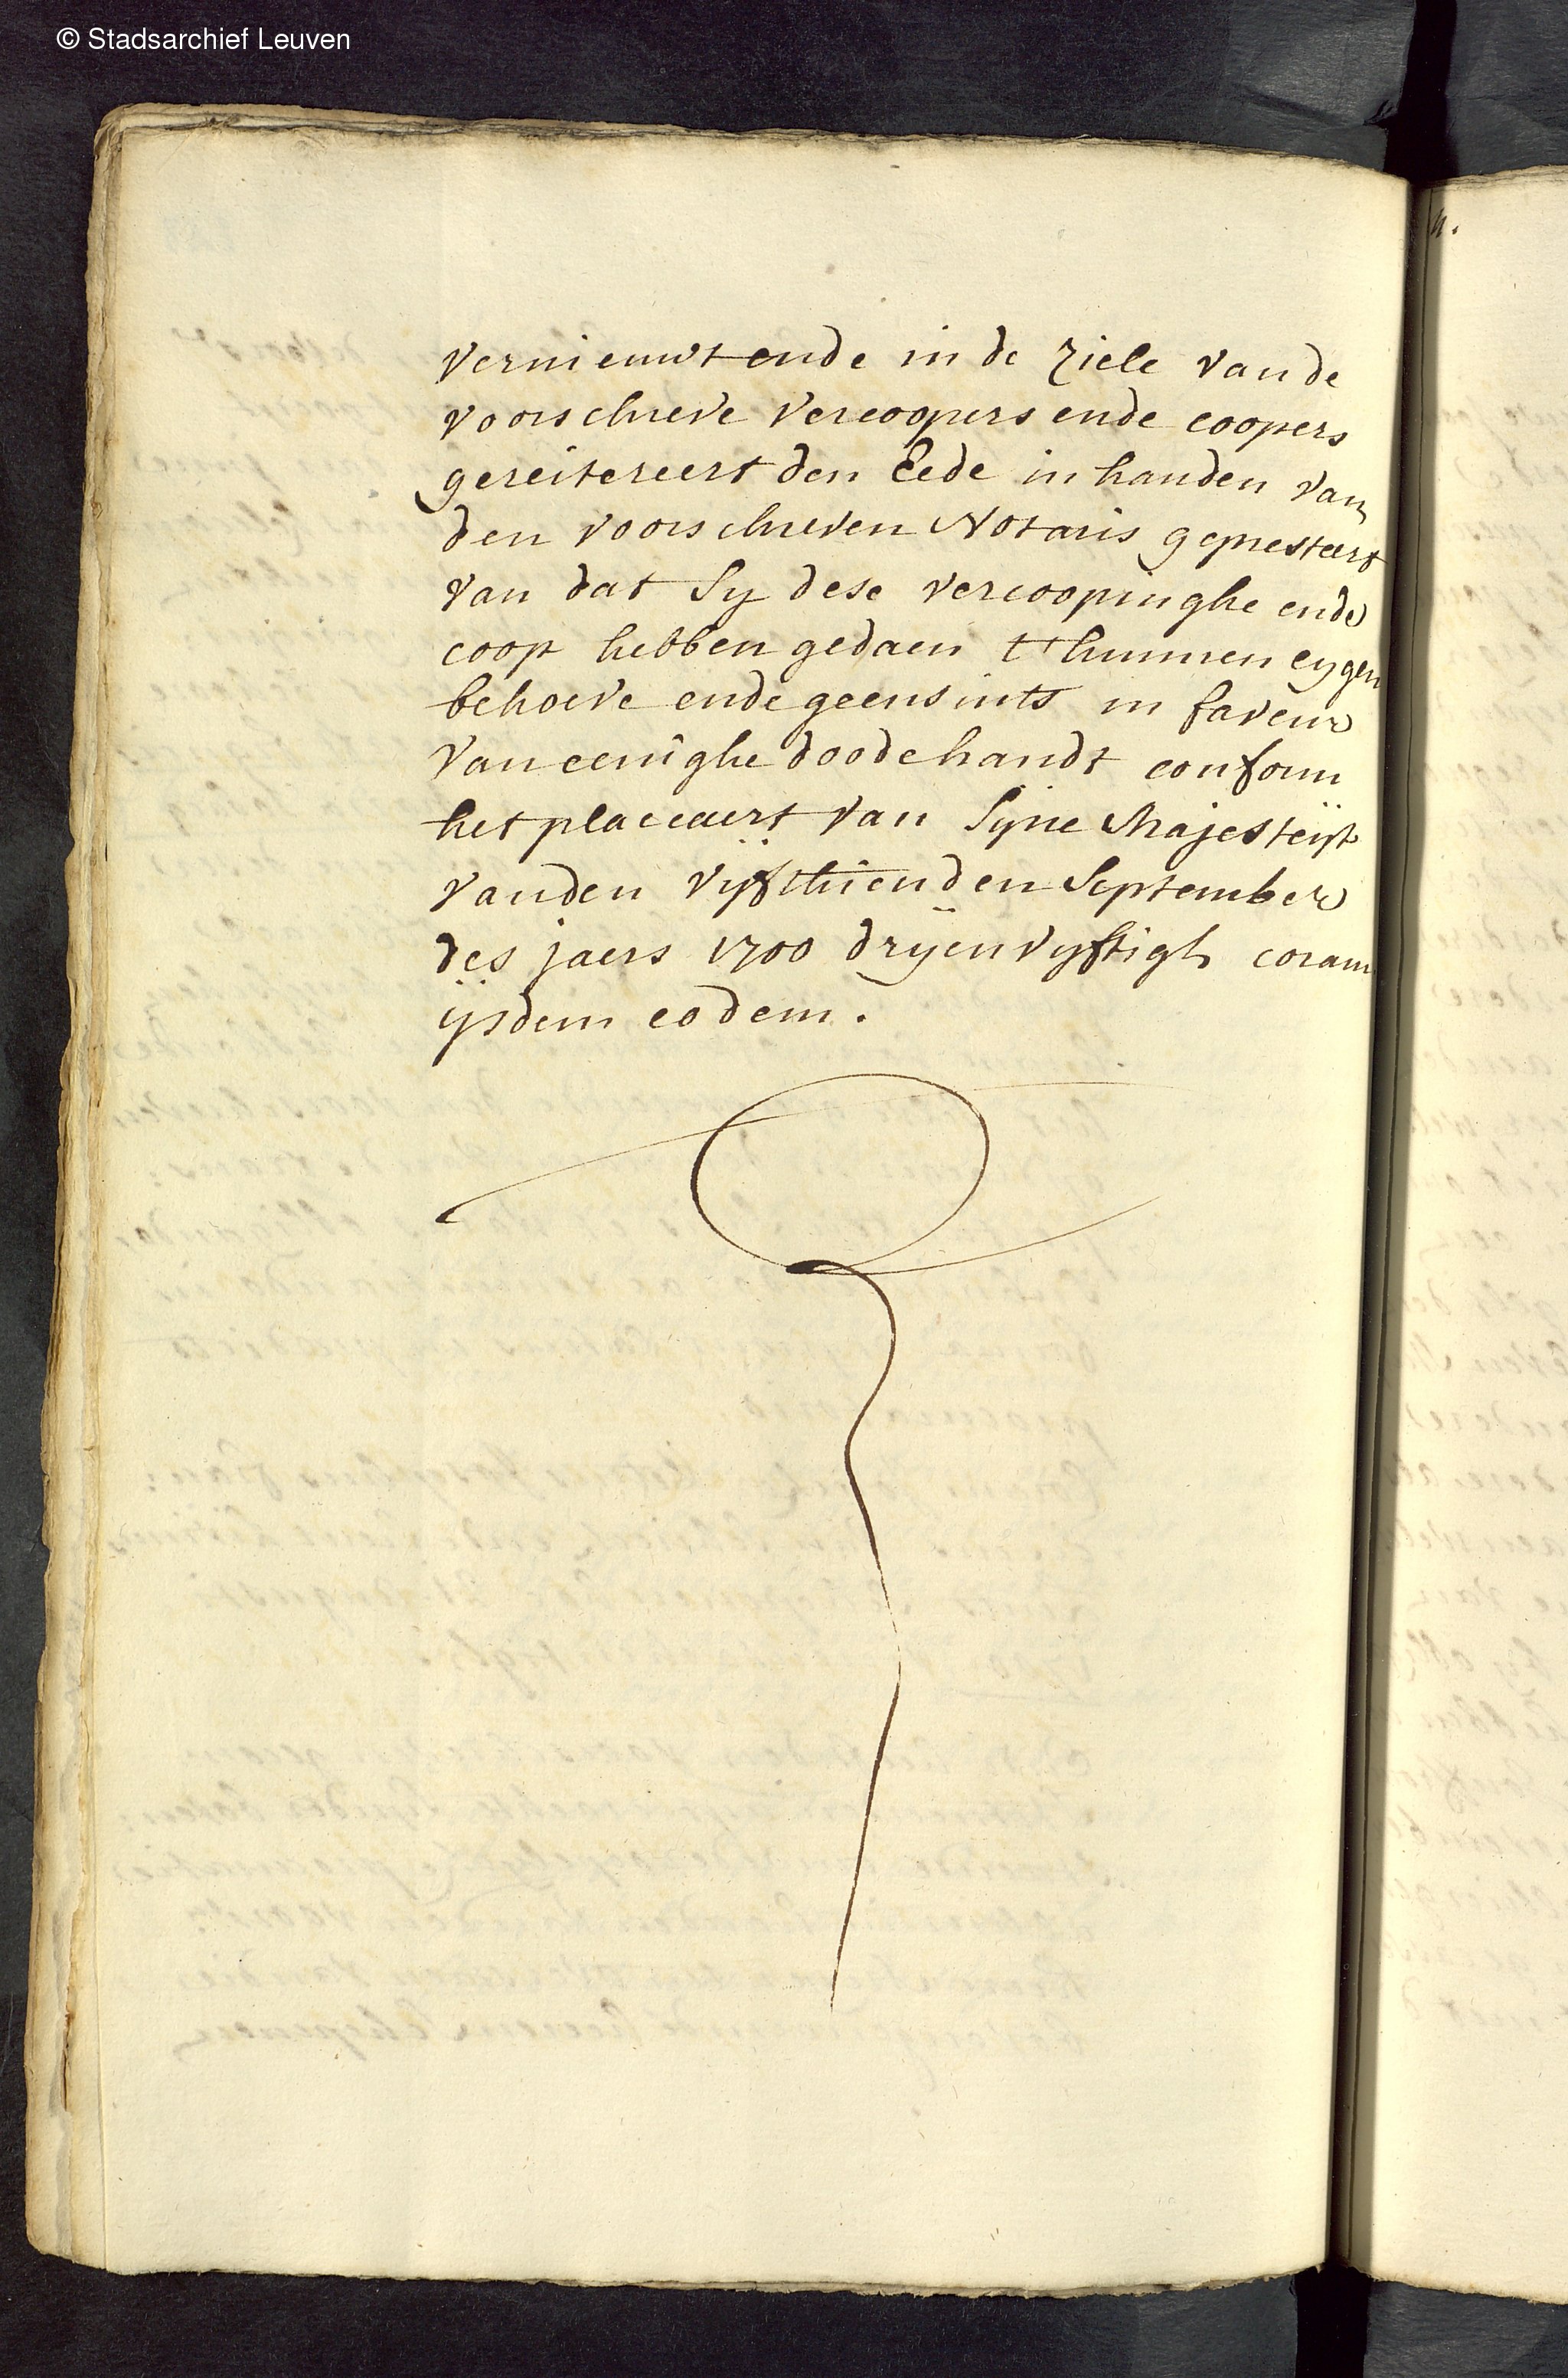 © Stadsarchief Leuven
vernieuwt ende in de ziele van de
voorschreve vercoopers ende coopers
gereitereert den Eede in handen van
den voorschreven Notaris gepresteert
van dat sy dese vercoopinghe ende
coop hebben gedaen t' hunnen eygen
behoeve ende geensints in faveur
van eenighe doode handt conform
het placcaert van syne Majesteÿt
vanden vÿfthienden September
des jaers 1700 drÿenvyftigh coram
ÿsdem eodem.